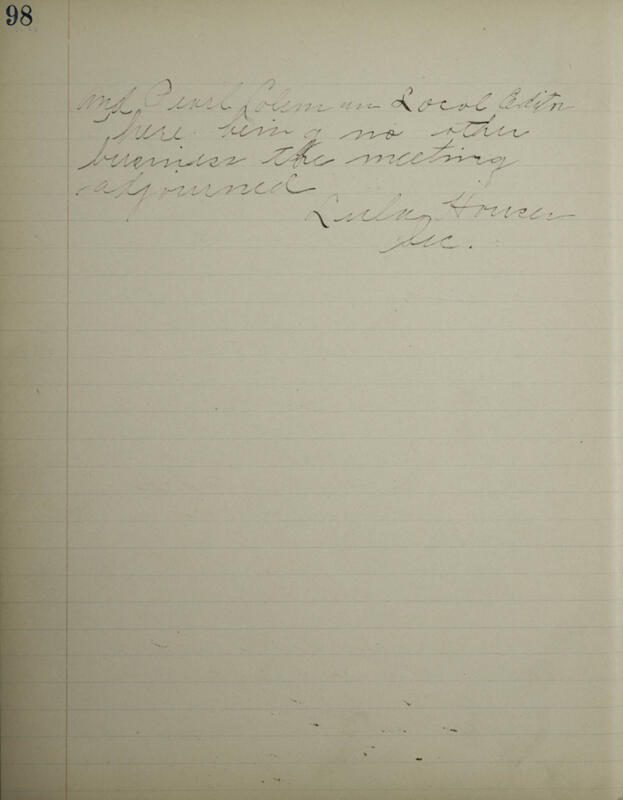 98
and Pearl Coleman Local Editor
There being no other
business the meeting
adjourned
Lula Houser
Sec.